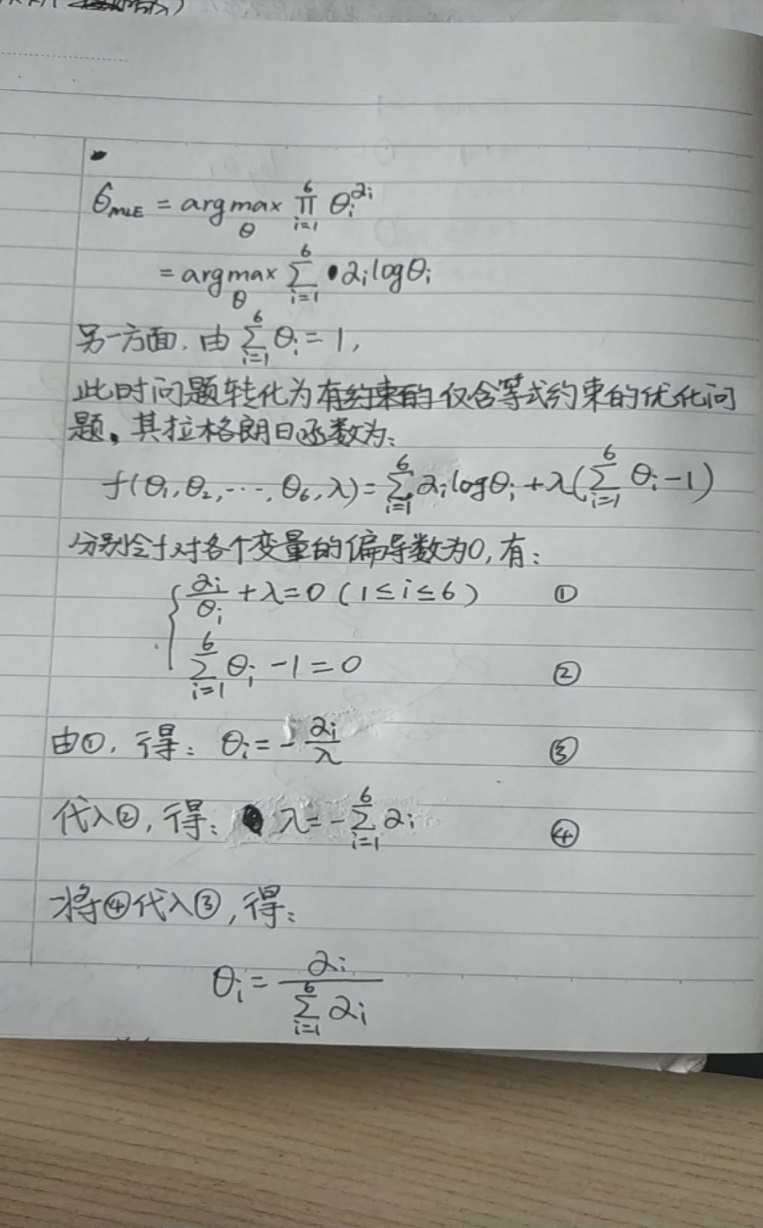 θ̂_MLE = argmax_θ ∏_{i=1}^{6} θ_i^{α_i}
= argmax_θ ∑_{i=1}^{6} α_i logθ_i
另一方面, 由 ∑_{i=1}^{6} θ_i = 1,
此时问题转化为有约束的仅含等式约束的优化问
题。其拉格朗日函数为:
f(θ_1, θ_2, ..., θ_6, λ) = ∑_{i=1}^{6} α_i logθ_i + λ(∑_{i=1}^{6} θ_i - 1)
分别令f对各个变量的偏导数为0, 有:
α_i/θ_i + λ = 0 (1 ≤ i ≤ 6) ①
∑_{i=1}^{6} θ_i - 1 = 0 ②
由①, 得: θ_i = - α_i/λ ③
代入②, 得: λ = -∑_{i=1}^{6} α_i ④
将④代入③, 得:
θ_i = α_i / ∑_{i=1}^{6} α_i